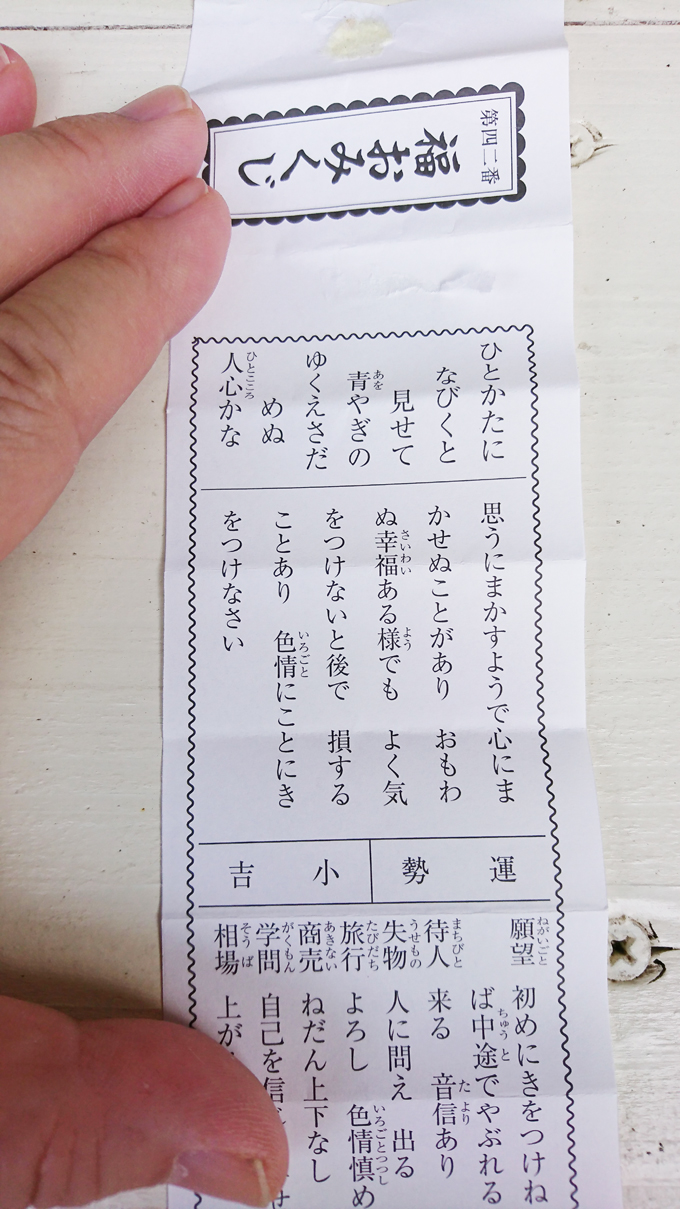 第四二番
福おみくじ
ひとかたに
なびくと
見せて
青やぎの
ゆくえさだ
めぬ
人心かな
思うにまかすようで心にま
かせぬことがあり　おもわ
ぬ幸福ある様でも　よく気
をつけないと後で　損する
ことあり　色情にことにき
をつけなさい
運勢　小吉
願望　初めにきをつけね
ば中途でやぶれる
待人　来る　音信あり
失物　人に問え　出る
旅行　よろし　色情慎め
商売　ねだん上下なし
学問　自己を信じ
相場　上が